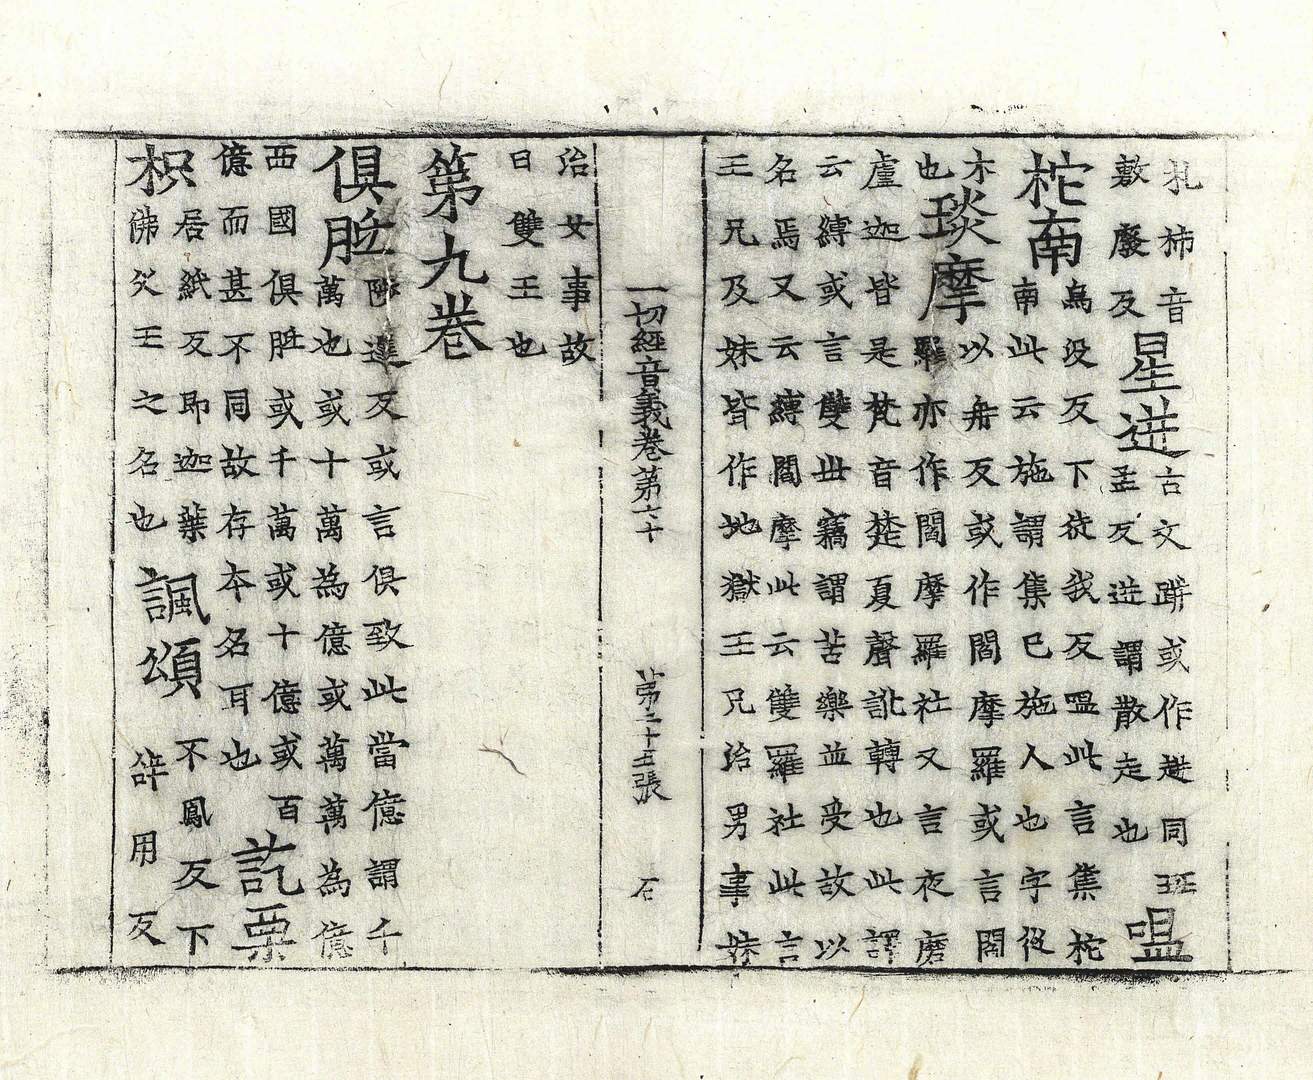 札柿音
敷廢反
星迸
古文跰或作迸同班
孟反迸謂散走也
嗢
柁南
烏没反下徒我反嗢此言集柁
南此云施謂集已施人也字從
木
也
琰摩
以冉反或作閻摩羅或言閻
羅亦作閻摩羅社又言夜磨
盧迦皆是梵音楚夏聲訛轉也此譯
云縛或言雙世竊謂苦樂並受故以
名焉又云縛閻摩此云雙羅社此言
王兄及妹皆作地獄王兄治男事妹
一切經音義卷第七十 第二十五張 石
治女事故
曰雙王也
第九卷
俱胝
陟遲反或言俱致此當億謂千
萬也或十萬為億或萬萬為億
西國俱胝或千萬或十億或百
億而甚不同故存本名耳也
訖栗
枳
居紙反即迦葉
佛父王之名也
諷頌
不鳳反下
辝用反